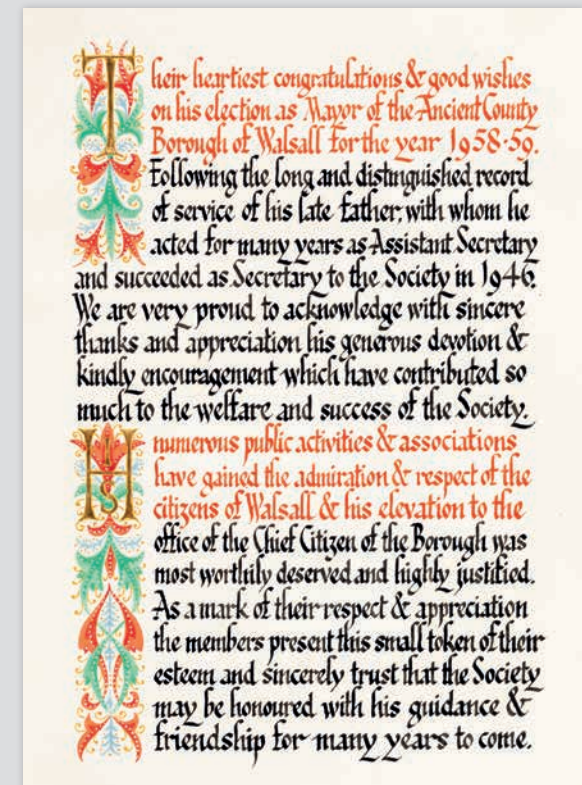 Their heartiest congratulations & good wishes
on his election as Mayor of the Ancient County
Borough of Walsall for the year 1958-59.
Following the long and distinguished record
of service of his late father, with whom he
acted for many years as Assistant Secretary
and succeeded as Secretary to the Society in 1946.
We are very proud to acknowledge with sincere
thanks and appreciation his generous devotion &
kindly encouragement which have contributed so
much to the welfare and success of the Society.
His numerous public activities & associations
have gained the admiration & respect of the
citizens of Walsall & his elevation to the
office of the Chief Citizen of the Borough was
most worthily deserved and highly justified.
As a mark of their respect & appreciation
the members present this small token of their
esteem and sincerely trust that the Society
may be honoured with his guidance &
friendship for many years to come.